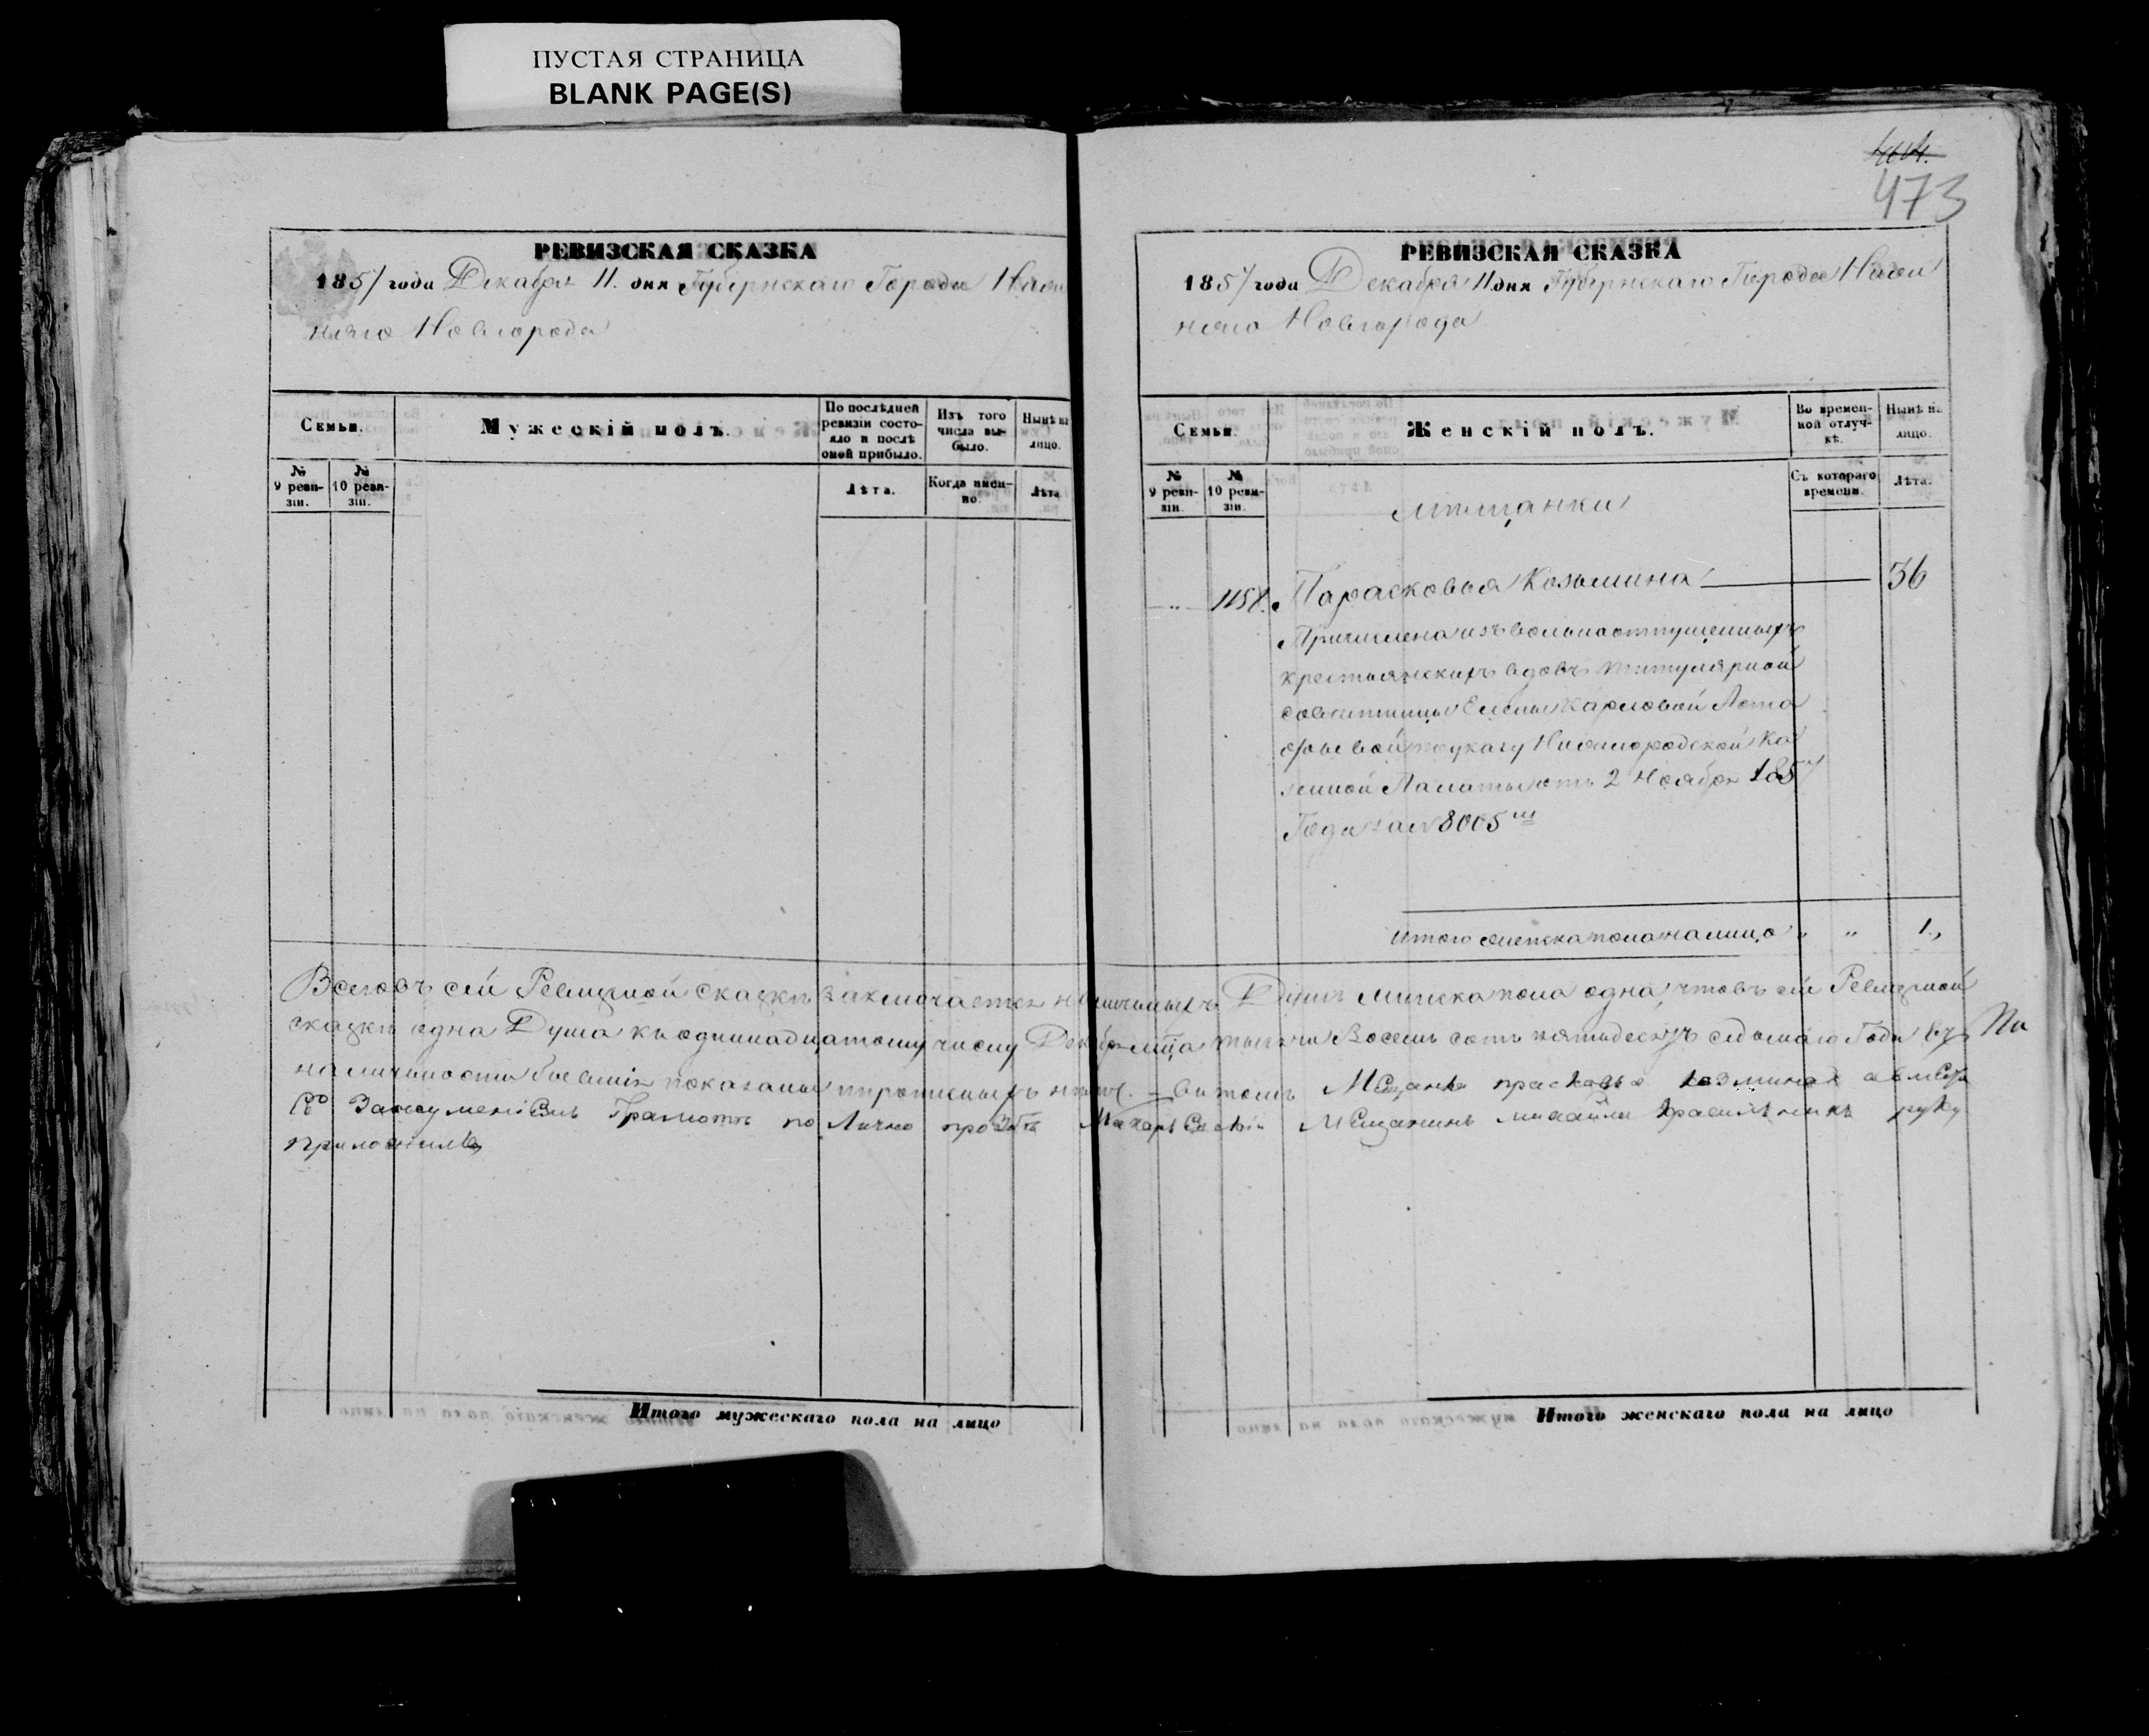 ПУСТАЯ СТРАНИЦА
BLANK PAGE(S)
РЕВИЗСКАЯ СКАЗКА
1857 года Декабря 11. дня Губернскаго Города Ниж
няго Новгорода
Семьи.
Мужескій полъ.
По послѣдней ревизіи состо-
яло и послѣ
оной прибыло.
Изъ того
числа вы-
было.
Нынѣ на
лицо.
№
9 реви-
зіи.
№
10 реви-
зіи.
Лѣта.
Когда имен-
но.
Лѣта
Итого мужескаго пола на лицо
473
РЕВИЗСКАЯ СКАЗКА
1857 года Декабря 11 дня Губернскаго Города Ниж
няго Новгорода
Семьи.
Женскій полъ.
Во времен-
ной отлуч-
кѣ.
Нынѣ на
лицо.
№
9 реви-
зіи.
№
10 реви-
зіи.
Съ котораго
времени.
Лѣта.
Мѣщанки
„ Парасковья Козьмина 36
Причислена изъ вольноотпущенныхъ
крестьянскихъ вдовъ титулярной
совѣтницы Елены Карловой
по указу Нижегородской Ка
зенной Палаты отъ 2 Ноября 1857
Года за № 8005 м
Итого женска пола налицо „ „ 1„
Всего въ сей Ревизной сказкѣ заключается наличныхъ Душъ женска пола одна, что въ сей Ревизной
сказкѣ одна Душа къ одинадцатому числу Декабря мца тысяча Восемь сотъ пятьдесятъ седьмаго Года въ
наличности бывшія показаны и прописныхъ нѣтъ. = въ томъ Мещанка прасковья козмина а вместо
Ее За неуменіемъ Грамотѣ по Лично прозбѣ Макарьевскій Мещанинъ михайла красильник руку
приложилъ
Итого женскаго пола на лицо